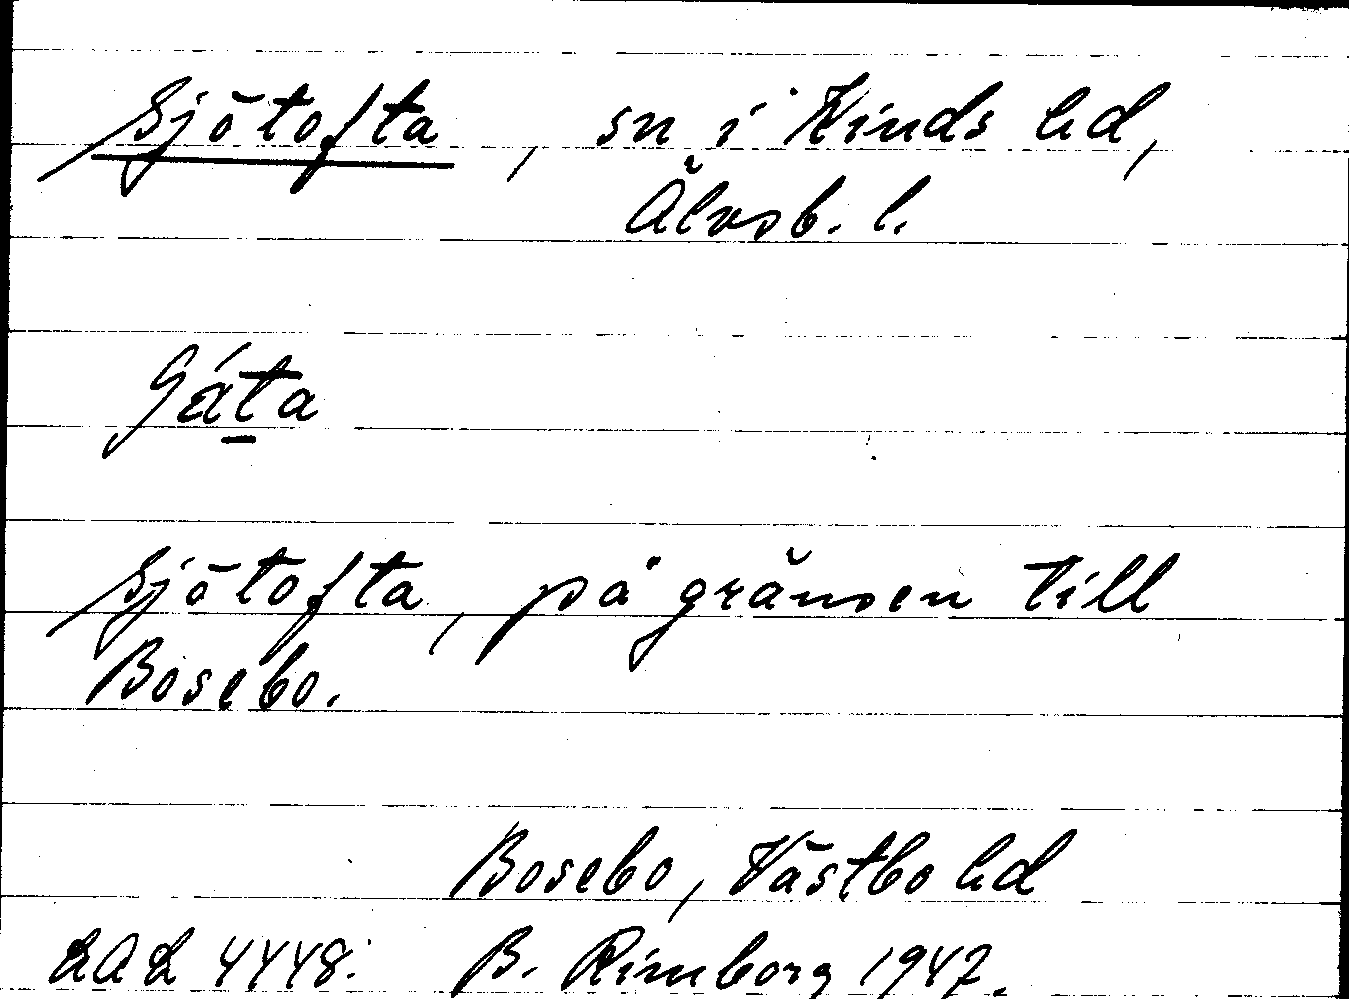 Sjötofta, sn i Kinds hd,
Älvsb. l.
Gáta
Sjötofta, på gränsen till
Bosebo.
Bosebo, Västbo hd
LAL 4448. B. Rimborg 1947.